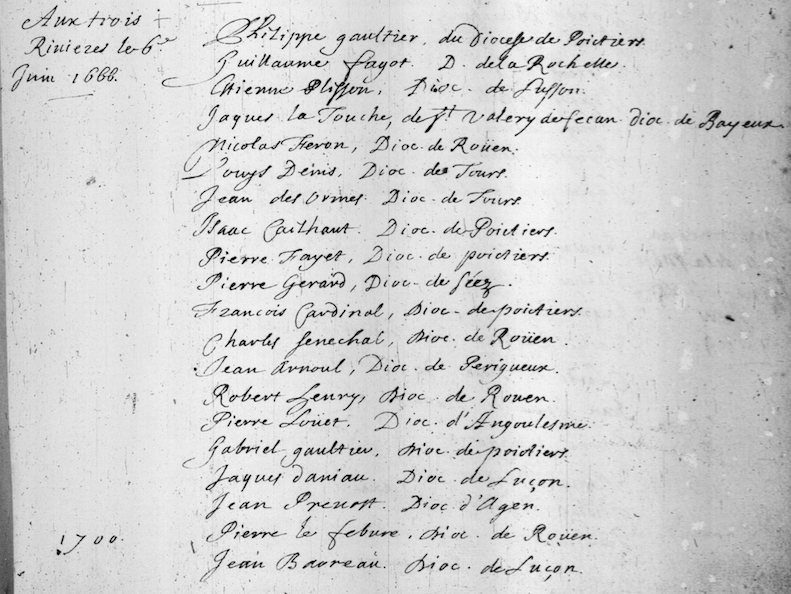 Aux trois
Rivieres le 6e
Juin 1668.
Philippe gaultier, du Diocese de Poictiers.
Guillaume fagot. D. de la Rochelle.
Etienne Plisson, Dioc. de Lusson.
Jaques la Touche, de St Valery de fecan dioc. de Bayeux.
Nicolas Feron, Dioc. de Roüen.
Louys Denis, Dioc. de Tours.
Jean des ormes Dioc. de Tours
Isaac Cailhaut. Dioc. de Poictiers.
Pierre Fayet, Dioc. de poictiers.
Pierre Gerard, Dioc. de Séez.
François Cardinal, Dioc. de poictiers.
Charles senechal, Dioc. de Roüen.
Jean Arnoul, Dioc. de Perigueux.
Robert henry, Dioc. de Rouen.
Pierre Loüet. Dioc. d'Angoulesme.
Gabriel gaultier, Dioc. de poictiers.
Jaques daniau. Dioc. de Luçon.
Jean Prevost. Dioc. d'Agen.
1700.
Pierre le febure, Dioc. de Roüen.
Jean Dioc. de Luçon.